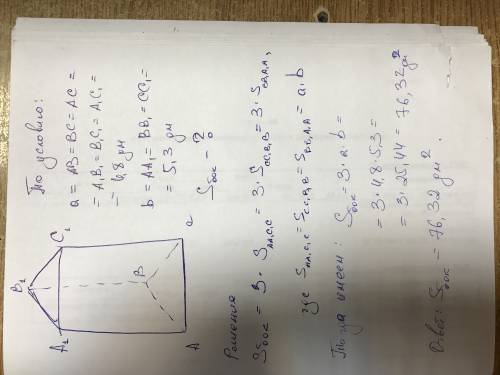 По условию:
a = AB = BC = AC =
= A₁B₁ = B₁C₁ = A₁C₁ =
= 4,8 дм
b = AA₁ = BB₁ = CC₁ =
= 5,3 дм
Sбок - ?
B₁
A₁
C₁
B
A
C
Решения
Sбок = 3 · SAA₁C₁C = 3 · SCC₁B₁B = 3 · SBB₁A₁A,
где SAA₁C₁C = SCC₁B₁B = SBB₁A₁A = a · b
Тогда имеем: Sбок = 3 · a · b =
= 3 · 4,8 · 5,3 =
= 3 · 25,44 = 76,32 дм²
Ответ: Sбок = 76,32 дм².